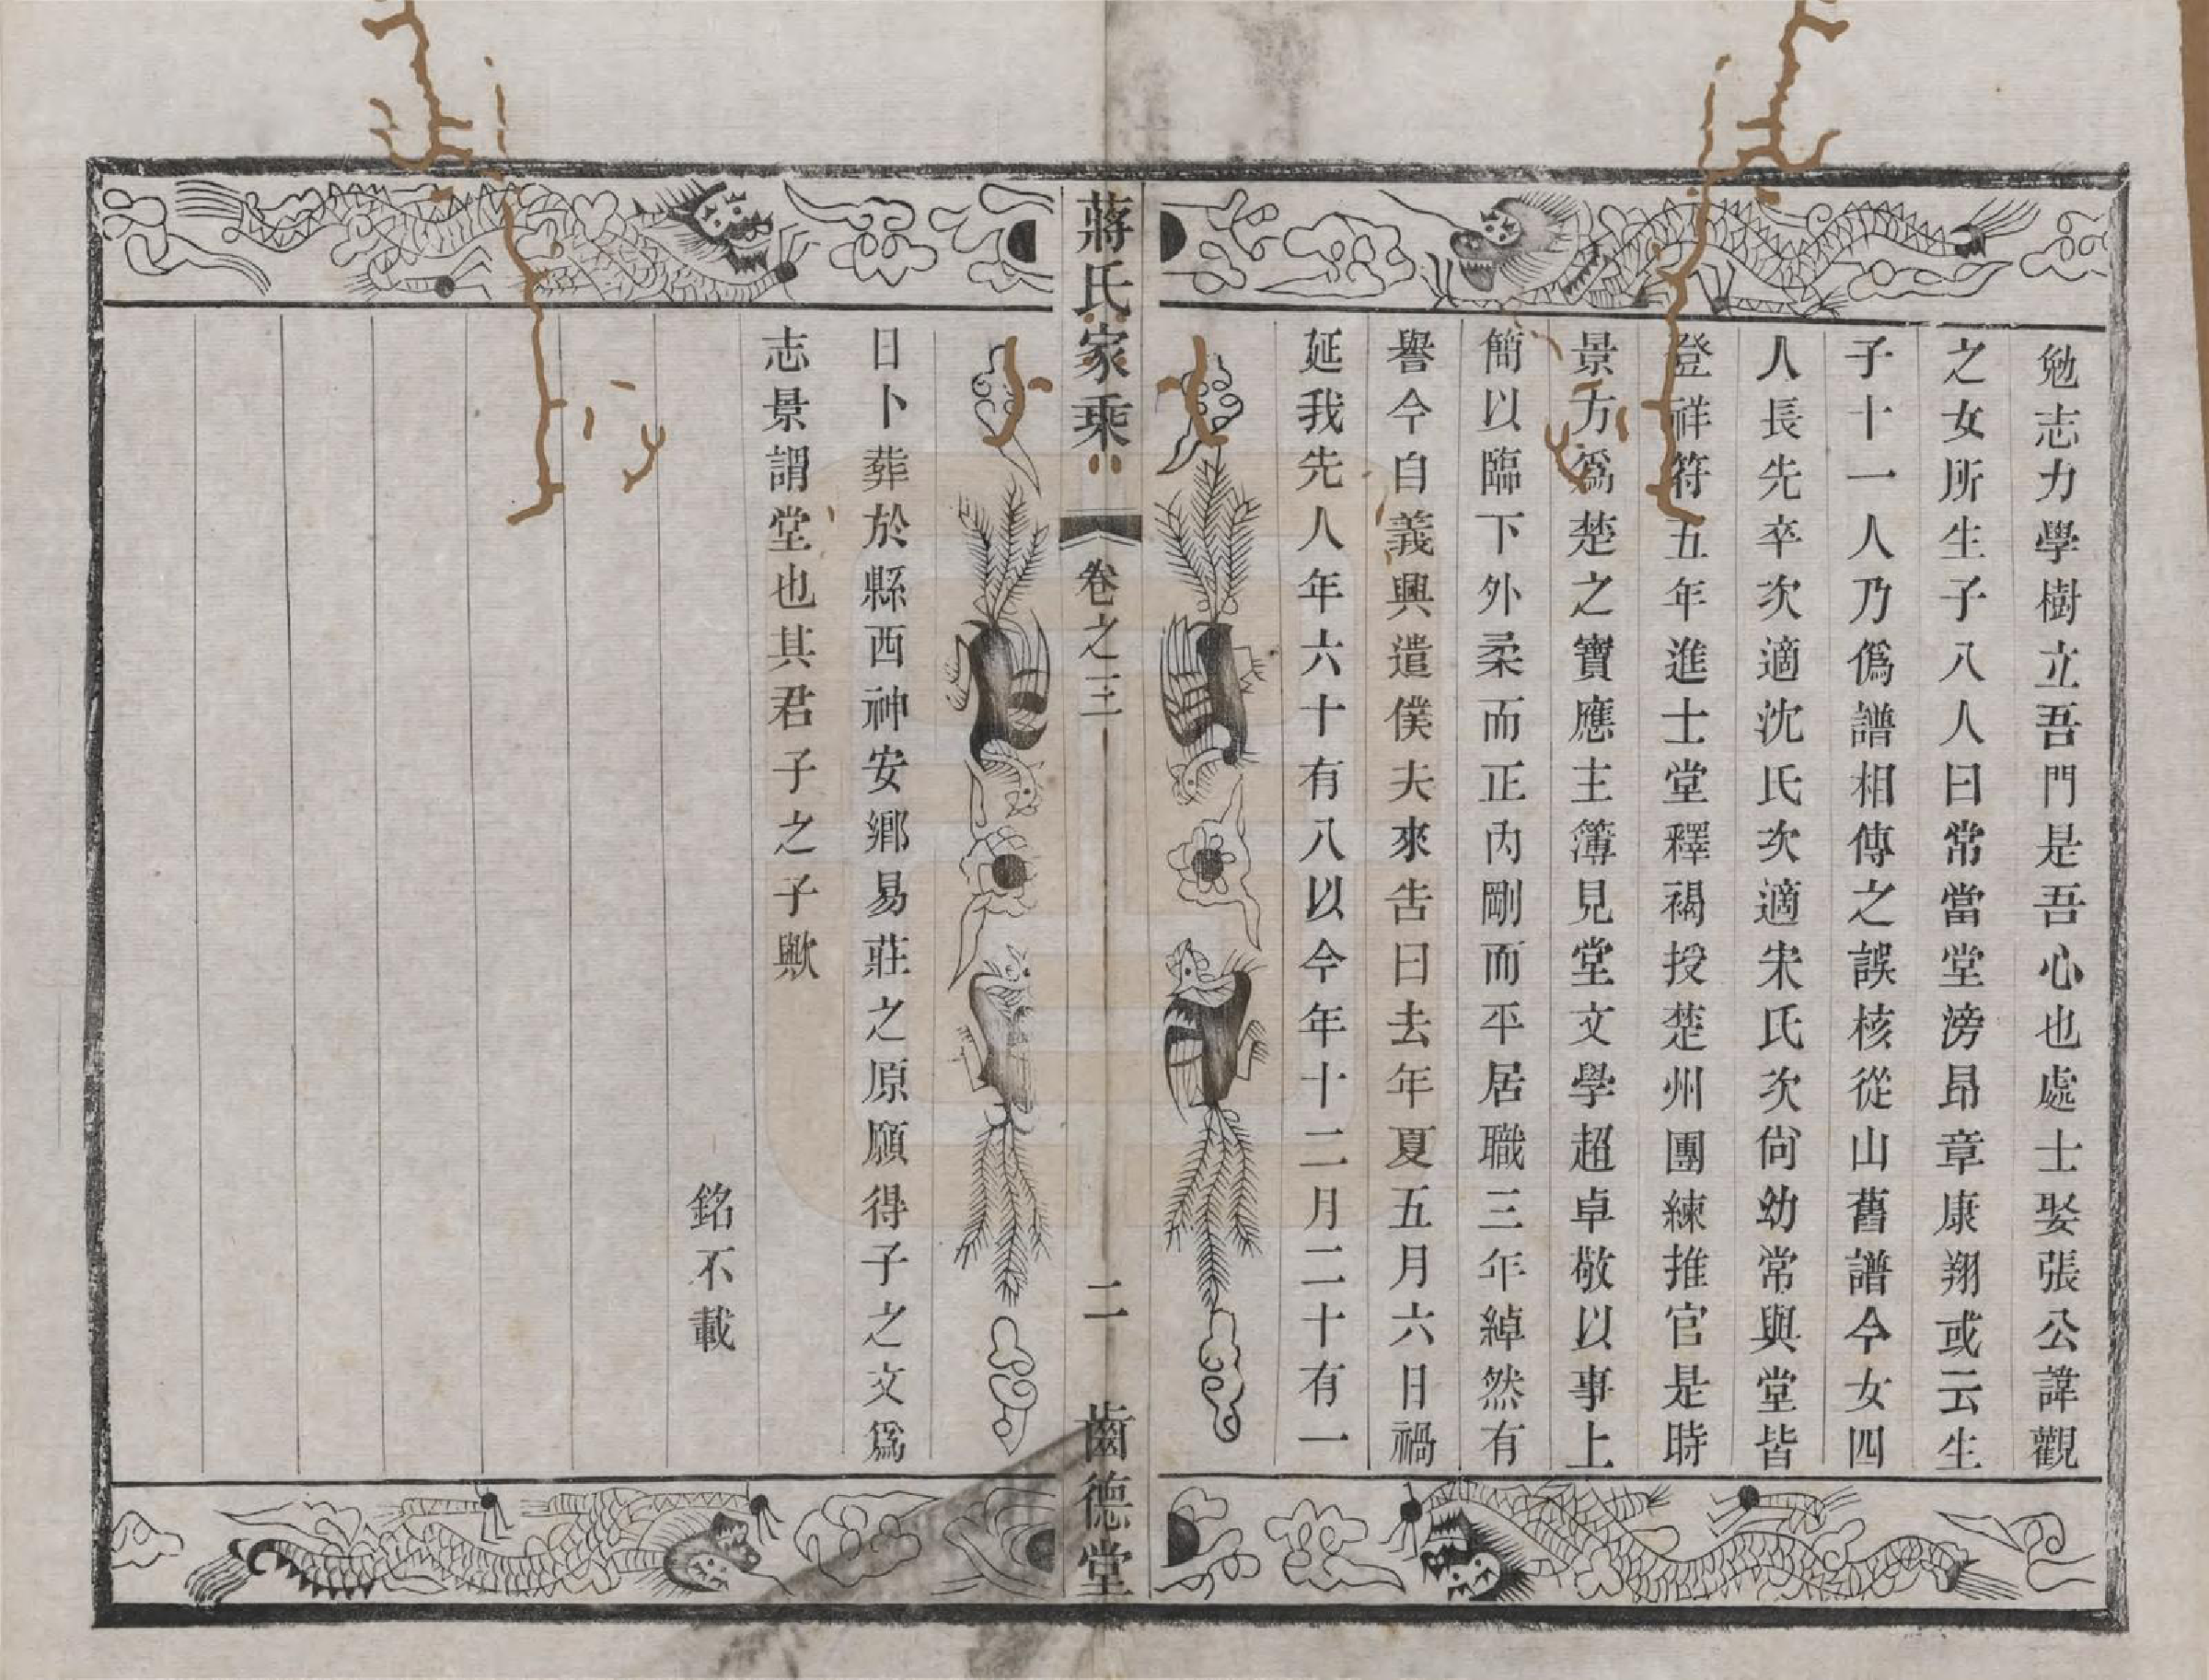 勉志力學樹立吾門是吾心也處士娶張公諱觀
之女所生子八人曰常當堂滂昂章康翔或云生
子十一人乃僞譜相傳之誤核從山舊譜今女四
人長先卒次適沈氏次適宋氏次尙幼常與堂皆
登祥符五年進士堂釋褐授楚州團練推官是時
景方爲楚之寶應主簿見堂文學超卓敬以事上
簡以臨下外柔而正內剛而平居職三年綽然有
譽今自義興遣僕夫來吿曰去年夏五月六日禍
延我先人年六十有八以今年十二月二十有一
蔣氏家乘
卷之三
二
齒德堂
日卜葬於縣西神安鄉易莊之原願得子之文爲
志景謂堂也其君子之子歟
銘不載